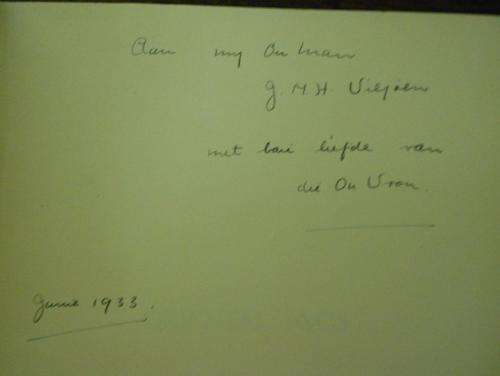 Aan my Ou man
G. M. H. Viljoen
met baie liefde van
die Ou Vrou.
Junie 1933.